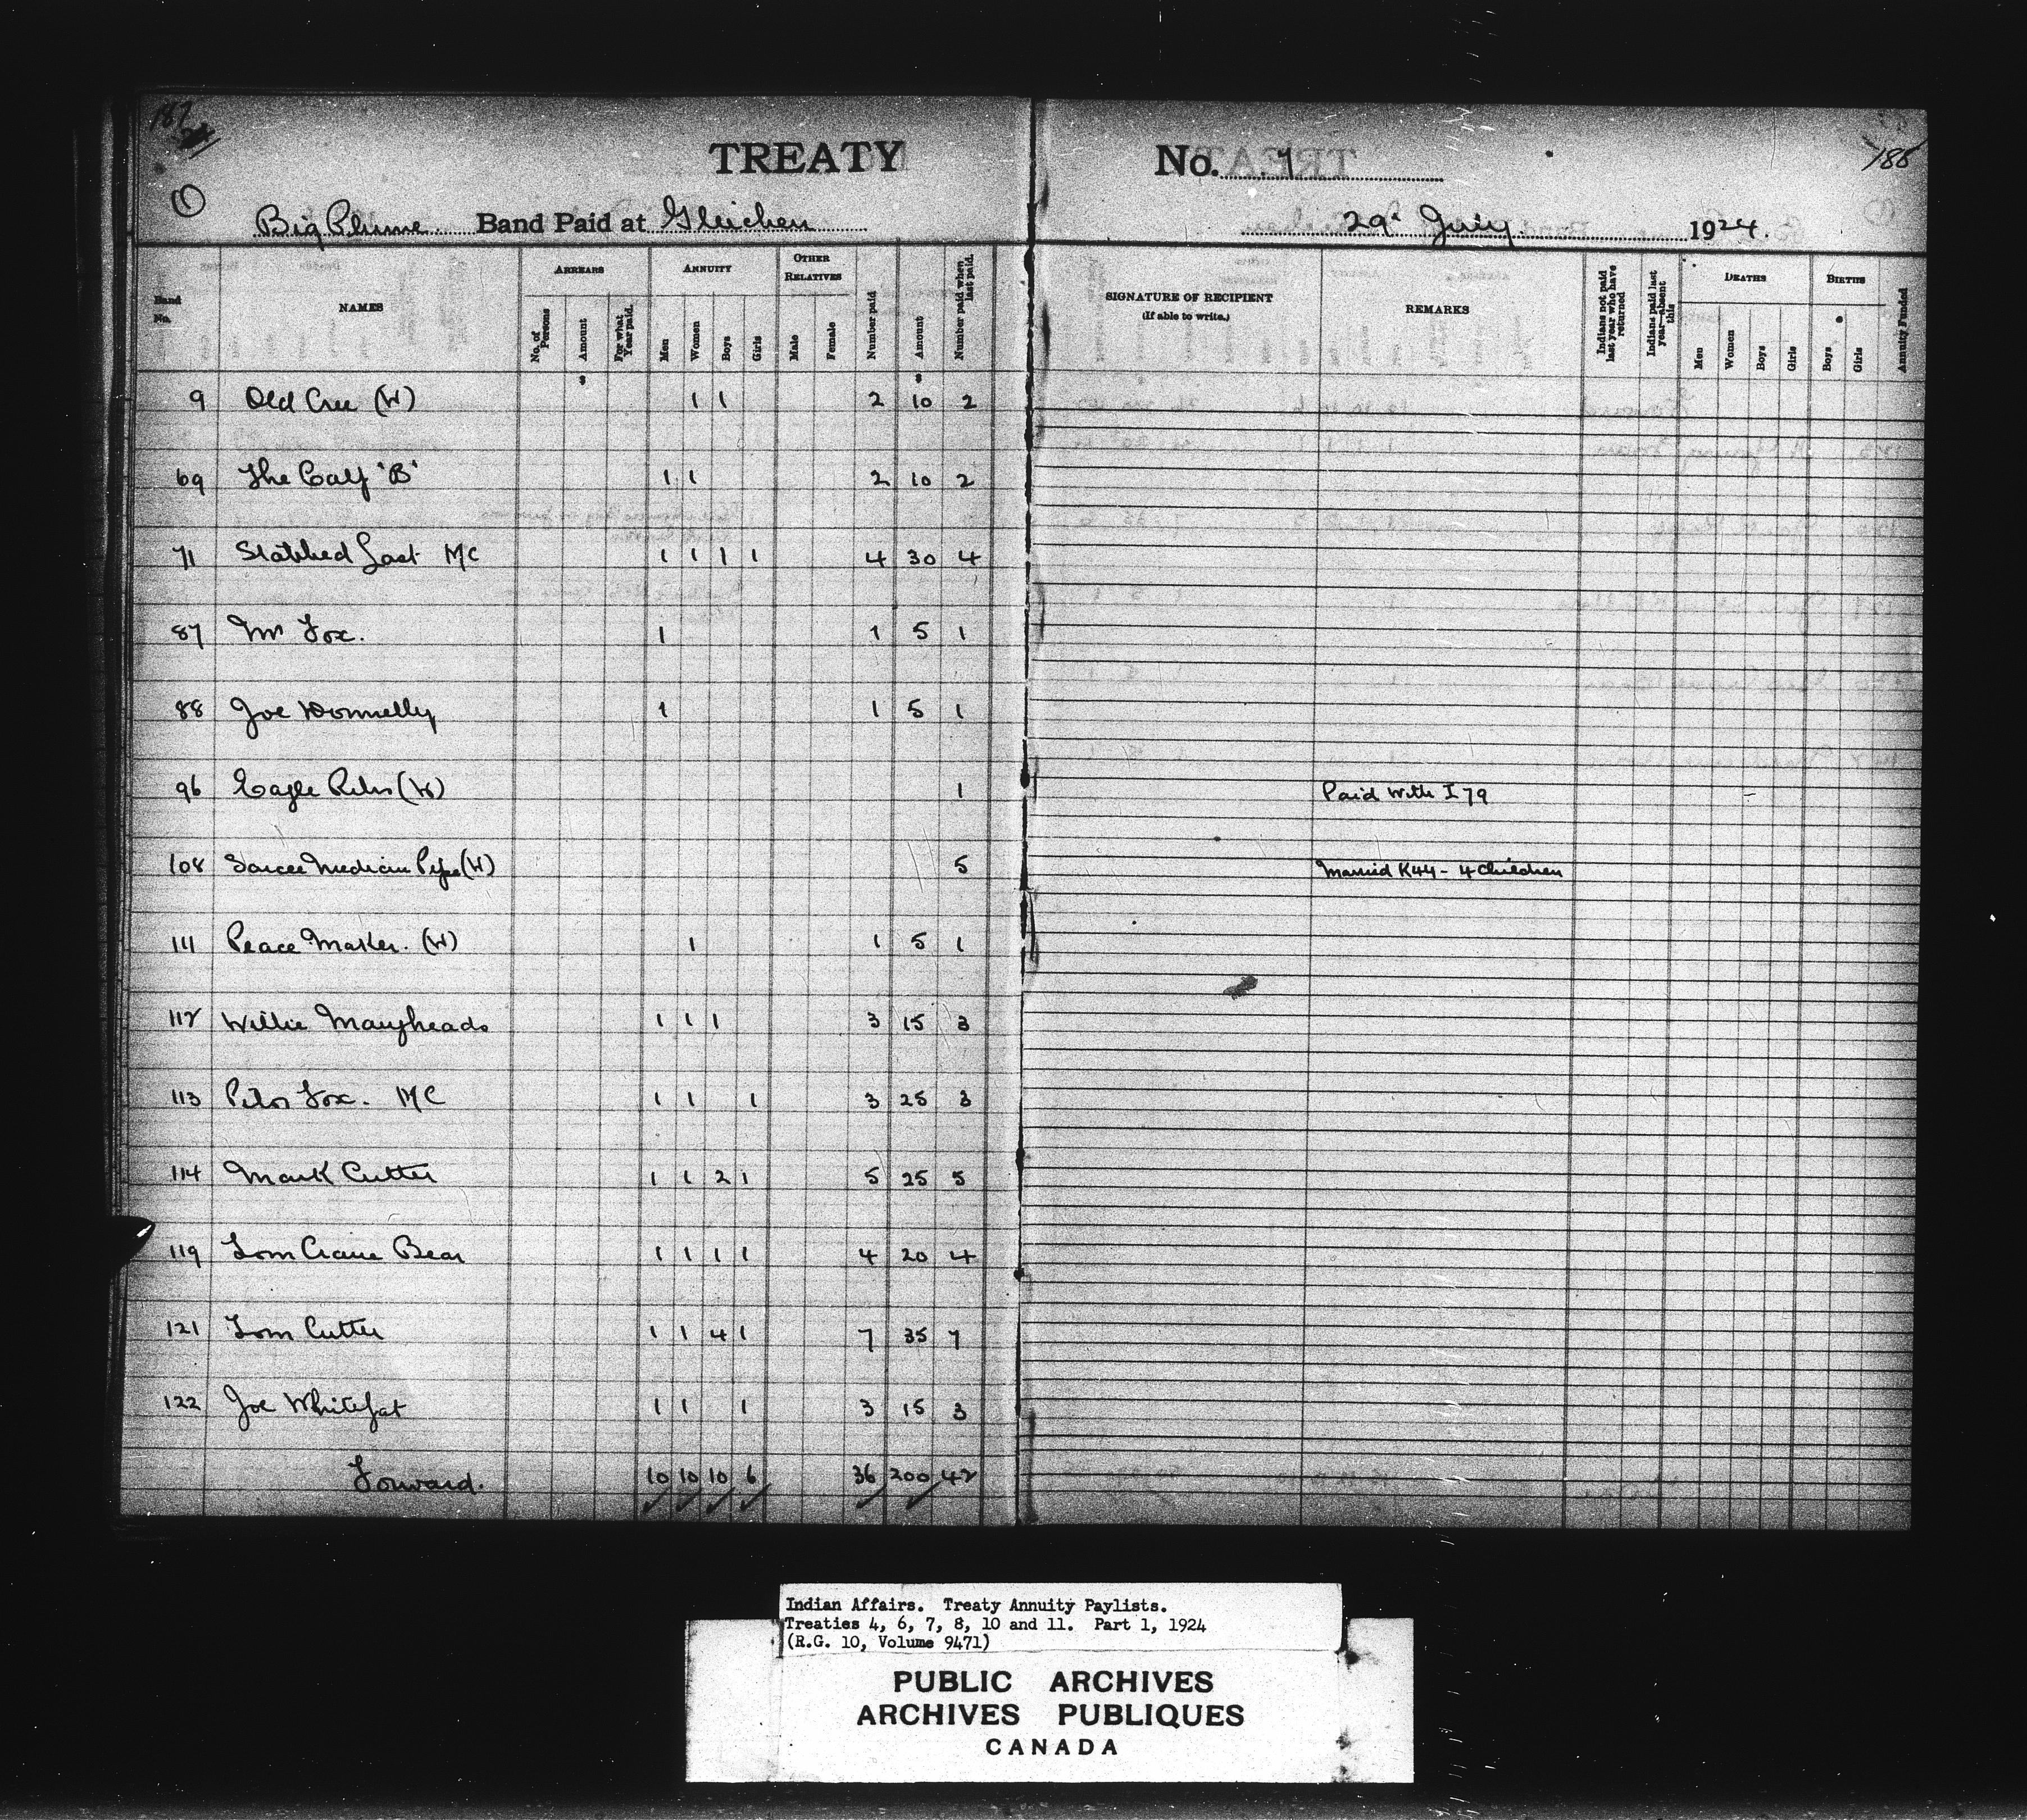 187
188
TREATY No. 7
1
Big Plume Band Paid at Gleichen 29 July 1924.
Band No. NAMES ARREARS ANNUITY OTHER RELATIVES Number paid Amount Number paid when last paid. SIGNATURE OF RECIPIENT (If able to write.) REMARKS Indians not paid last year who have returned Indians paid last year—absent this DEATHS BIRTHS Annuity Funded
No. of Persons Amount For what Year paid. Men Women Boys Girls Male Female Men Women Boys Girls Boys Girls
$ $
9 Old Cree (W) 1 1 2 10 2
69 The Calf 'B' 1 1 2 10 2
71 Stabbed Last MC 1 1 1 1 4 30 4
87 Mr Fox. 1 1 5 1
88 Joe Donnelly 1 1 5 1
96 Eagle Ribs (W) 1 Paid with I 79
108 Sarcee Medicine Pipe (W) 5 Married K44 - 4 Children
111 Peace Maker. (W) 1 1 5 1
112 Willie Manyheads 1 1 1 3 15 3
113 Fox. MC 1 1 1 3 25 3
114 Mark Cutter 1 1 2 1 5 25 5
119 Tom Crane Bear 1 1 1 1 4 20 4
121 Tom Cutter 1 1 4 1 7 35 7
122 Joe Whitefat 1 1 1 3 15 3
Forward. 10 10 10 6 36 200 42
Indian Affairs. Treaty Annuity Paylists.
Treaties 4, 6, 7, 8, 10 and 11. Part 1, 1924
(R.G. 10, Volume 9471)
PUBLIC ARCHIVES
ARCHIVES PUBLIQUES
CANADA